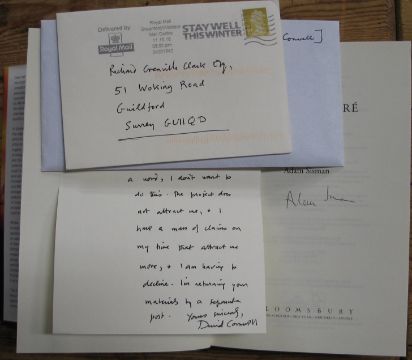 Delivered by
Royal Mail
Royal Mail
Mail Centre
STAY WELL
THIS WINTER
Richard Grenville Clark Esq,
51 Woking Road
Guildford
Surrey GU11QD
Cornwell]
RÉ
Adam Sisman
Adam Sisman
BLOOMSBURY
a word, I don't want to
do this. The project does
not attract me, & I
have a mass of claims on
my time that attract me
more, & I am having to
decline. I'm returning your
materials by a separate
post.
Yours sincerely,
David Cornwell